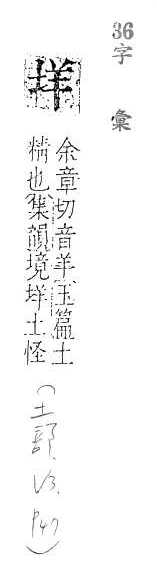 36字彙
垟
余章切音羊玉篇土
精也集韻境垟土怪
(土部, V3, P47)